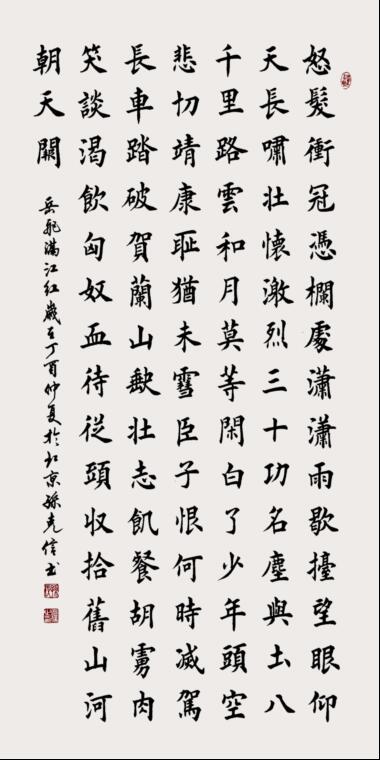 怒髮衝冠憑欄處瀟瀟雨歇擡望眼仰
天長嘯壯懷激烈三十功名塵與土八
千里路雲和月莫等閑白了少年頭空
悲切靖康耻猶未雪臣子恨何時滅駕
長車踏破賀蘭山缺壯志飢餐胡虜肉
笑談渴飲匈奴血待從頭收拾舊山河
朝天闕
岳飛滿江紅歲在丁酉仲夏於北京孫克信书